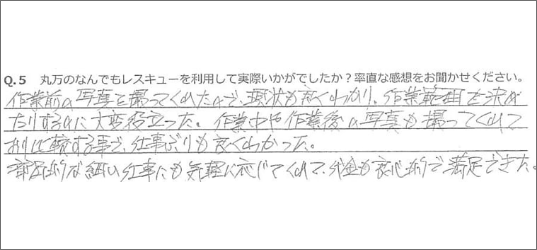 Q.5 丸万のなんでもレスキューを利用して実際いかがでしたか？率直な感想をお聞かせください。
作業前の写真を撮ってくれたので、現状が良くわかり、作業範囲を決め
たりするのに大変役立った。作業中や作業後の写真も撮ってくれて
おり比較する事で、仕事ぶりも良くわかった。
細い仕事にも気軽に応じてくれて、料金も良心的で満足できた。